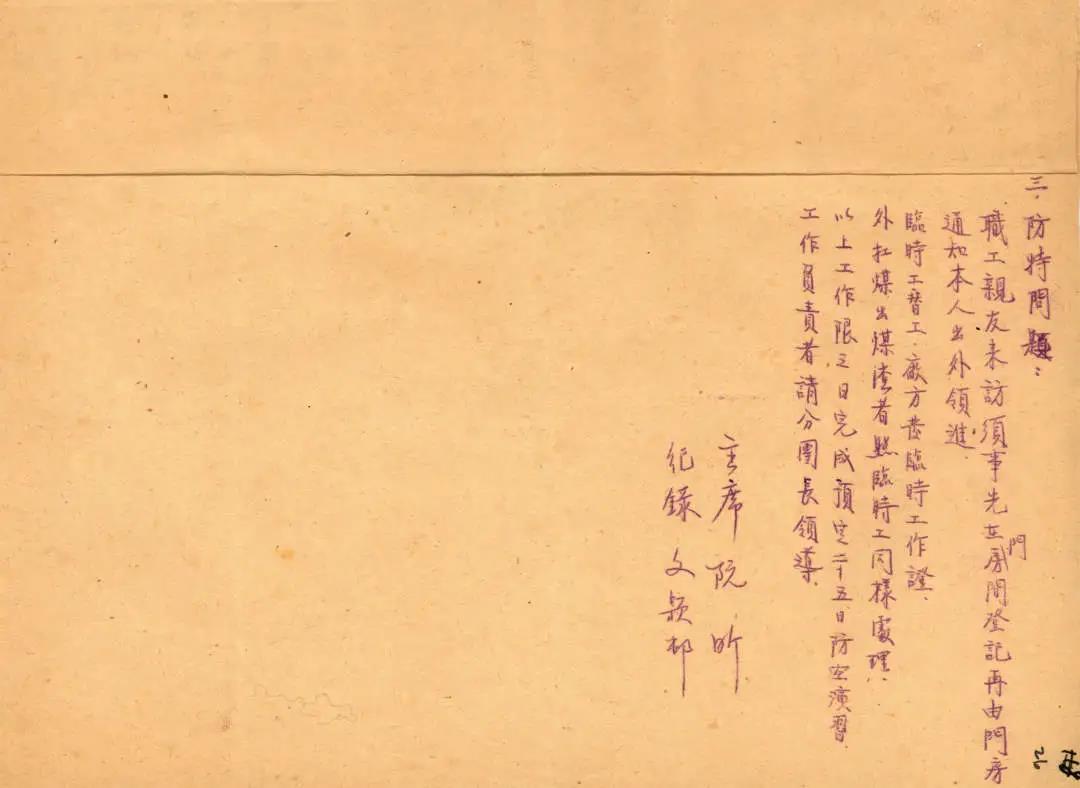 三．防特問題：
職工親友来訪須事先在門房間登記再由門房
通知本人出外領進．
臨時工替工．廠方發臨時工作證．
外扛煤出煤渣者照臨時工同樣處理．
以上工作限三日完成預定二十五日防空演習．
工作負責者請分團長領導．
主席 阮昕
紀錄 文